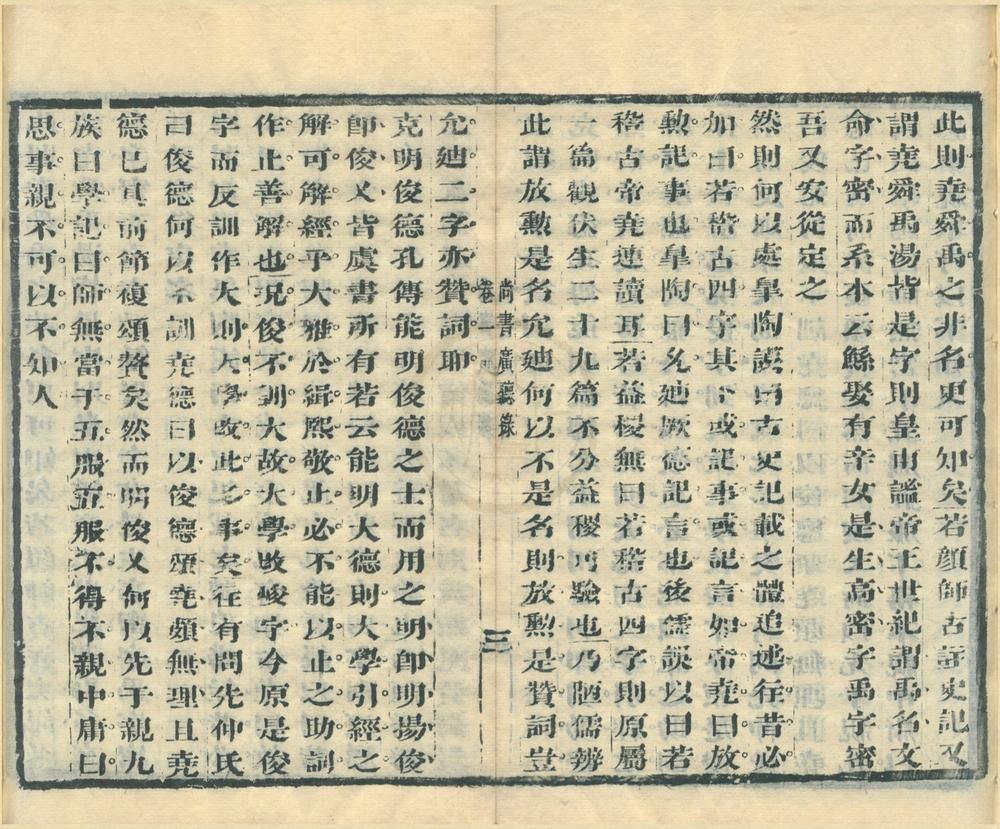 此則堯舜禹之非名史可知矣若顏師古註史記又
謂堯舜禹湯皆是字則皇甫謐帝王世紀謂禹名文
命字密而系本云鯀娶有辛女是生高密字禹字密
吾又安從定之
然則何以處皐陶謨曰古史記載之體追述往昔必
加曰若稽古四字其下或記事或記言如帝堯曰放
勳記事也皐陶曰允廸厥德記言也後儒誤以曰若
稽古帝堯連讀耳若益稷無曰若稽古四字則原屬
一篇觀伏生二十九篇不分益稷可驗也乃陋儒辨
此謂放勳是名允廸何以不是名則放勳是贊詞豈
尚書廣聽錄
卷一
三
允廸二字亦贊詞耶
克明俊德孔傳能明俊德之士而用之明卽明揚俊
卽俊乂皆虞書所有若云能明大德則大學引經之
解可解經乎大雅於緝熙敬止必不能以止之助詞
作止善解也況俊不訓大故大學改峻字今原是俊
字而反訓作大則大學改此多事矣在有問先仲氏
曰俊德何以不訓堯德曰以俊德頌堯頗無理且堯
德已具前節複頌贅矣然而明俊又何以先于親九
族曰學記曰師無當于五服五服不得不親中庸曰
思事親不可以不知人